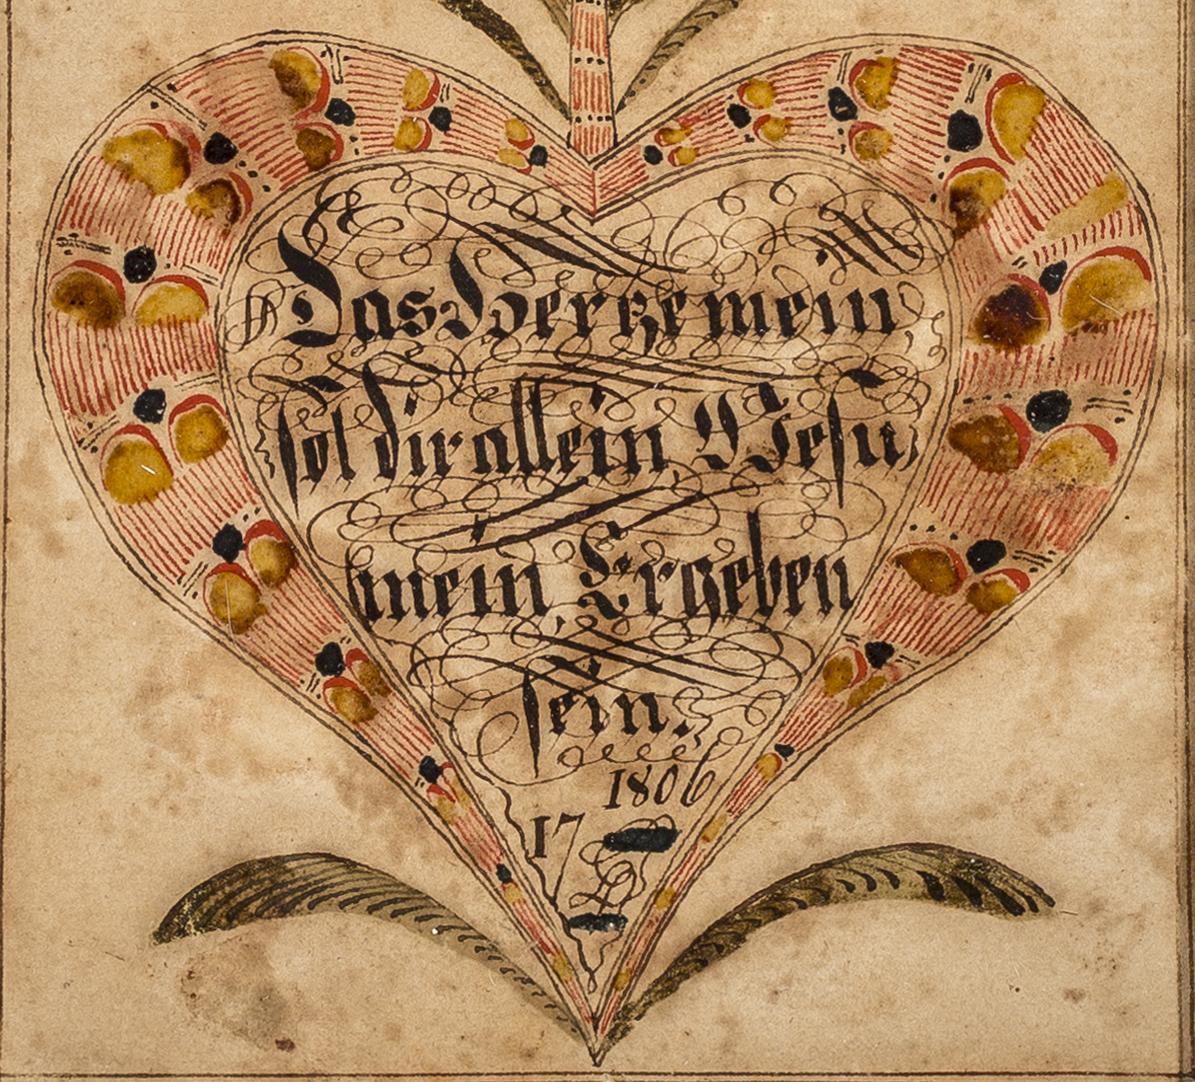 Das Hertze mein
sol dir allein O Jesu
mein Ergeben
sein.
1806
17